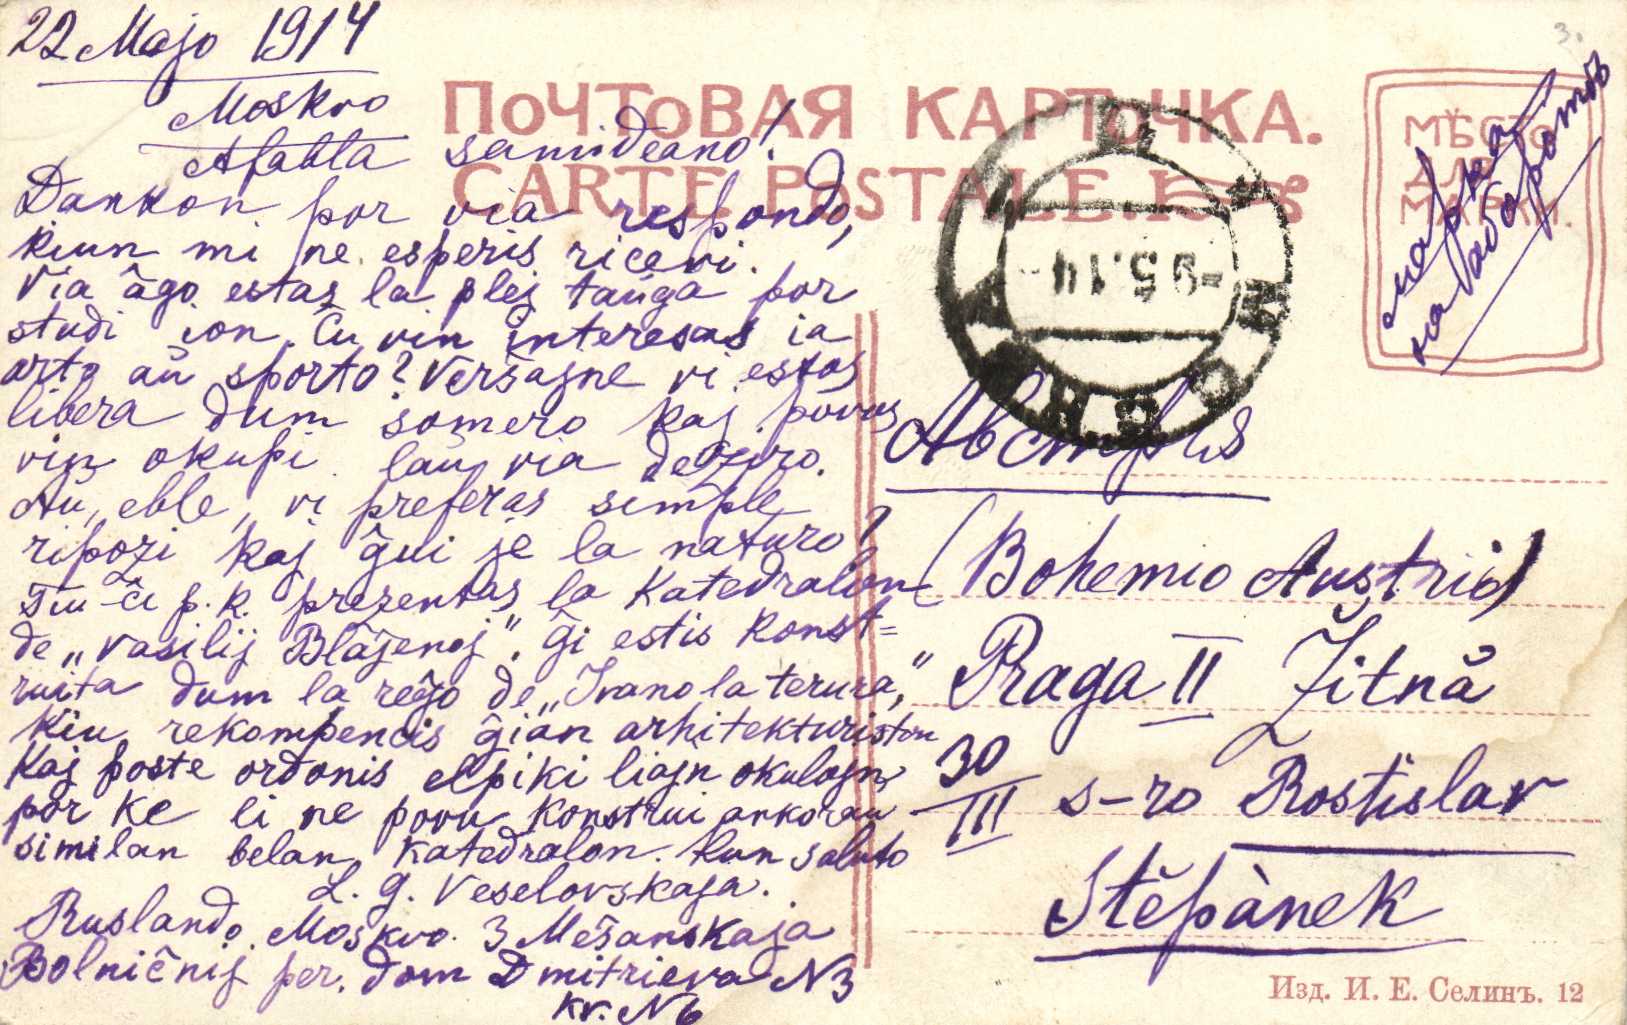 22 Majo 1914
Moskvo
Afabla samideano!
Dankon por via respondo,
kiun mi ne esperis ricevi.
Via âgo estas la plej taŭga por
studi ion. Ĉu vin interesas ia
arto aŭ sporto? Verŝajne vi estas
libera dum somero kaj povas
vin okupi laŭ via deziro.
Aŭ, eble, vi preferas simple
ripozi kaj ĝui je la naturo?
Tiu-ĉi p.k. prezentas la Katedralon
de „Vasilij Blaĵenoj“. Ĝi estis konst=
ruita dum la reĝo de „Ivano la terura,“
kiu rekompencis ĝian arhitekturiston
kaj poste ordonis elpiki liajn okulojn,
por ke li ne povu konstrui ankoraŭ
similan belan katedralon. Kun saluto
L. G. Veselovskaja.
Ruslando. Moskvo. 3 Meŝanskaja
Bolniĉnij per. dom Dmitrieva N3
kv. N6
ПОЧТОВАЯ КАРТОЧКА.
CARTE POSTALE.
МѢСТО
ДЛЯ
МАРКИ.
марка
на оборотѣ
3.
МОСКВА
-9.5.14
Австрія
(Bohemio Austrio)
Praga II Žitná
30
III s-ro Rostislav
Stěpànek
Изд. И. Е. Селинъ. 12